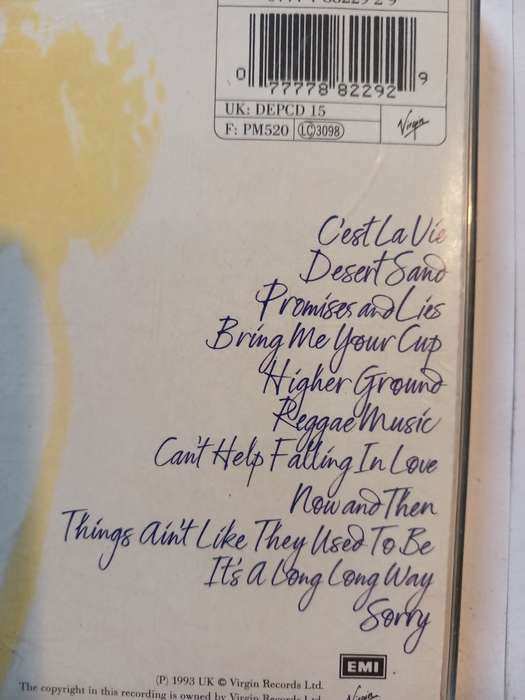 0 77778 82292 9
UK: DEPCD 15
F: PM520 LC3098
Virgin
C'est La Vie
Desert Sand
Promises and Lies
Bring Me Your Cup
Higher Ground
Reggae Music
Can't Help Falling In Love
Now and Then
Things Ain't Like They Used To Be
It's A Long Long Way
Sorry
EMI
(P) 1993 UK © Virgin Records Ltd.
The copyright in this recording is owned by Virgin Records Ltd.
Virgin